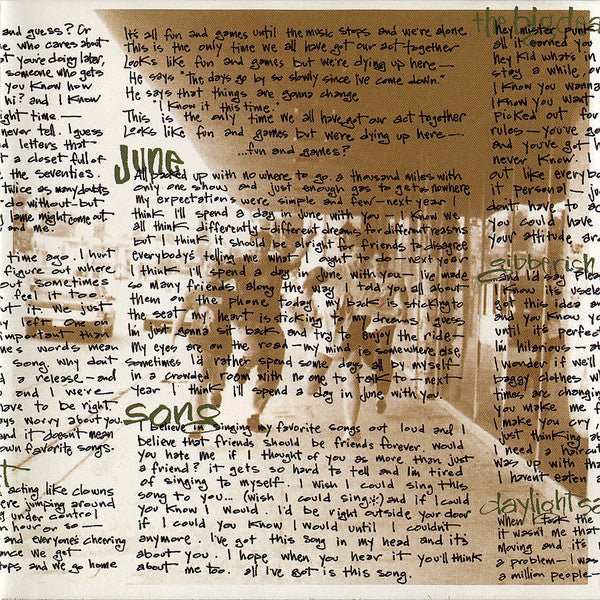 and guess? Or
e who cares about
t you're doing later,
someone who gets
you know how
hi? and I know
ight time—
never tell. I guess
d letters that
t a closet full of
the seventies.
twice as many doubts
do without—but
lame might come out
and me.
time ago. I hurt
figure out where
out sometimes
feel it too?
ut it. No just
y left. One on
important than
nes words mean
song. why don't
d a release—and
and I were
have to be right
ays worry about you.
and it doesn't mean
own favorite songs.
t
acting like clowns
ere jumping around
g under control
hour or so—
and everyone's cheering
ance we got
tops and we go home
It's all fun and games until the music stops and we're alone
This is the only time we all have got our act together
Looks like fun and games but we're dying up here—
He says "The days go by so slowly since I've come down."
He says that things are gonna change
"I know it this time."
This is the only time we all have got our act together
Looks like fun and games but we're dying up here—
...fun and games?
June
All packed up with no where to go. a thousand miles with
only one show and just enough gas to get a nowhere
my expectations were simple and few—next year I
think I'll spend a day in june with you—I know we
all think differently—different dreams for different reasons
but I think it should be alright for friends to disagree
everybody's telling me what I ought to do—next year
I think I'll spend a day in june with you—I've made
so many friends along the way I told you all about
them on the phone today. My back is sticking to
the seat my heart is sticking to my dreams I guess
I'm just gonna sit back and try to enjoy the ride—
My eyes are on the road—my mind is somewhere else
sometimes I'd rather spend some days all by myself—
in a crowded room with no one to talk to—next
year I think I'll spend a day in june with you.
song
I believe in singing my favorite songs out loud and I
believe that friends should be friends forever. would
you hate me if I thought of you as more than just
a friend? it gets so hard to tell and I'm tired
of singing to myself. I wish I could sing this
song to you... (wish I could sing*) and if I could
you know I would. I'd be right outside your door
if I could you know I would until I couldn't
anymore. I've got this song in my head and it's
about you. I hope when you hear it you'll think
about me too. all I've got is this song.
the big dea
hey mister punk
all it earned you
hey kid what's in
stay a while, or
I know you wanna
I know you want
picked out for
rules—you've go
and you've got h
never know.
out like everybo
it personal—ju
don't have to ac
you could have
your attitude ar
gibberish
and I'd say please
know it's useles
got this idea an
and you know y
until it's perfect
I'm hilarious—at
I wonder if we'll
baggy clothes wh
times are changin
you make me f
make you cry
just thinking ab
I need a haircut
was up with tha
I haven't eaten a
daylight sa
when I took the
it wasn't me that
Moving and it's
a problem—I wa
a million people—